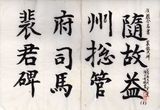 隨故益
州総管
府司馬
裴君碑